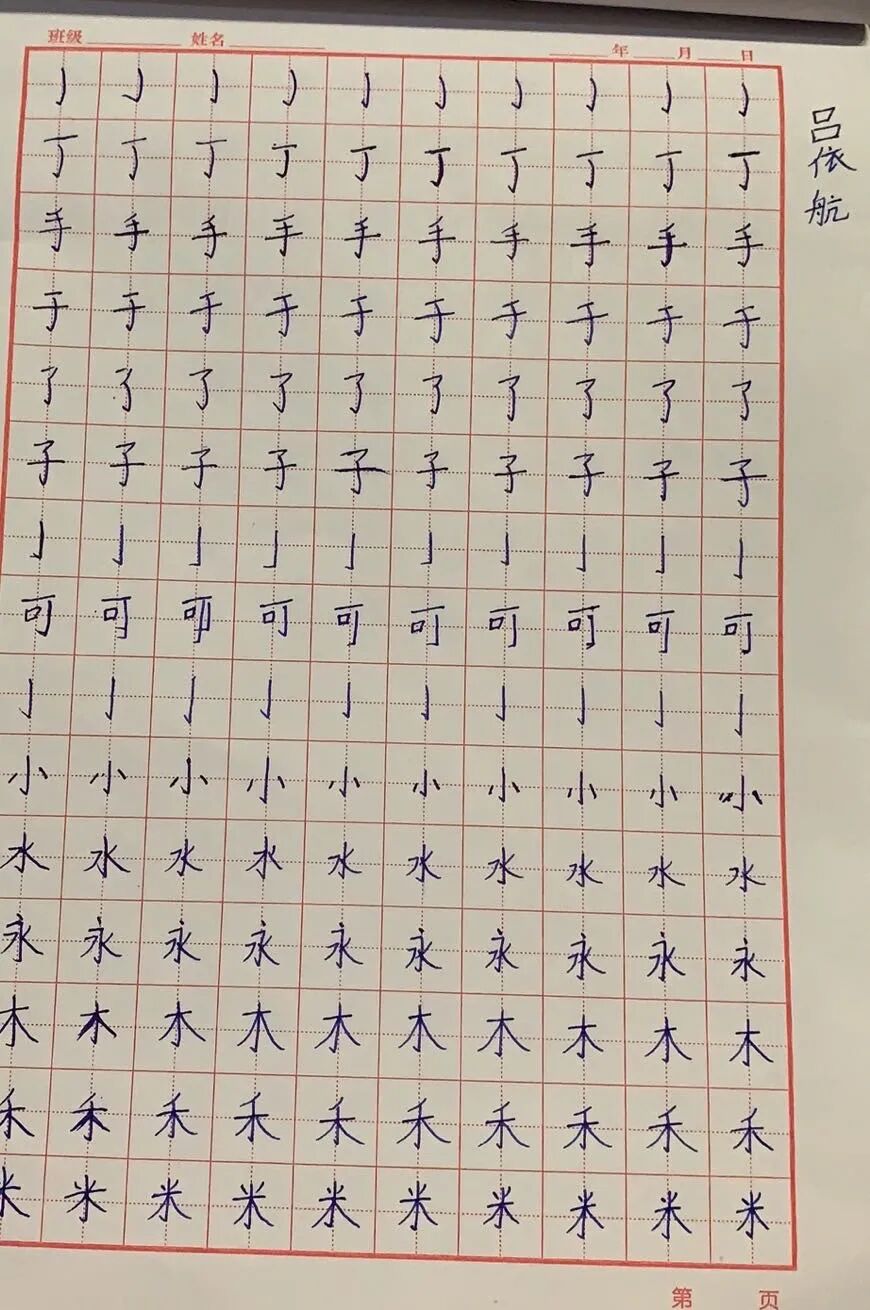 班级 姓名 年 月 日
吕依航
亅亅亅亅亅亅亅亅亅亅
丁丁丁丁丁丁丁丁丁丁
手手手手手手手手手手
于于于于于于于于于于
了了了了了了了了了了
子子子子子子子子子子
亅亅亅亅亅亅亅亅亅亅
可可可可可可可可可可
亅亅亅亅亅亅亅亅亅亅
小小小小小小小小小小
水水水水水水水水水水
永永永永永永永永永永
木木木木木木木木木木
禾禾禾禾禾禾禾禾禾禾
米米米米米米米米米米
第 页